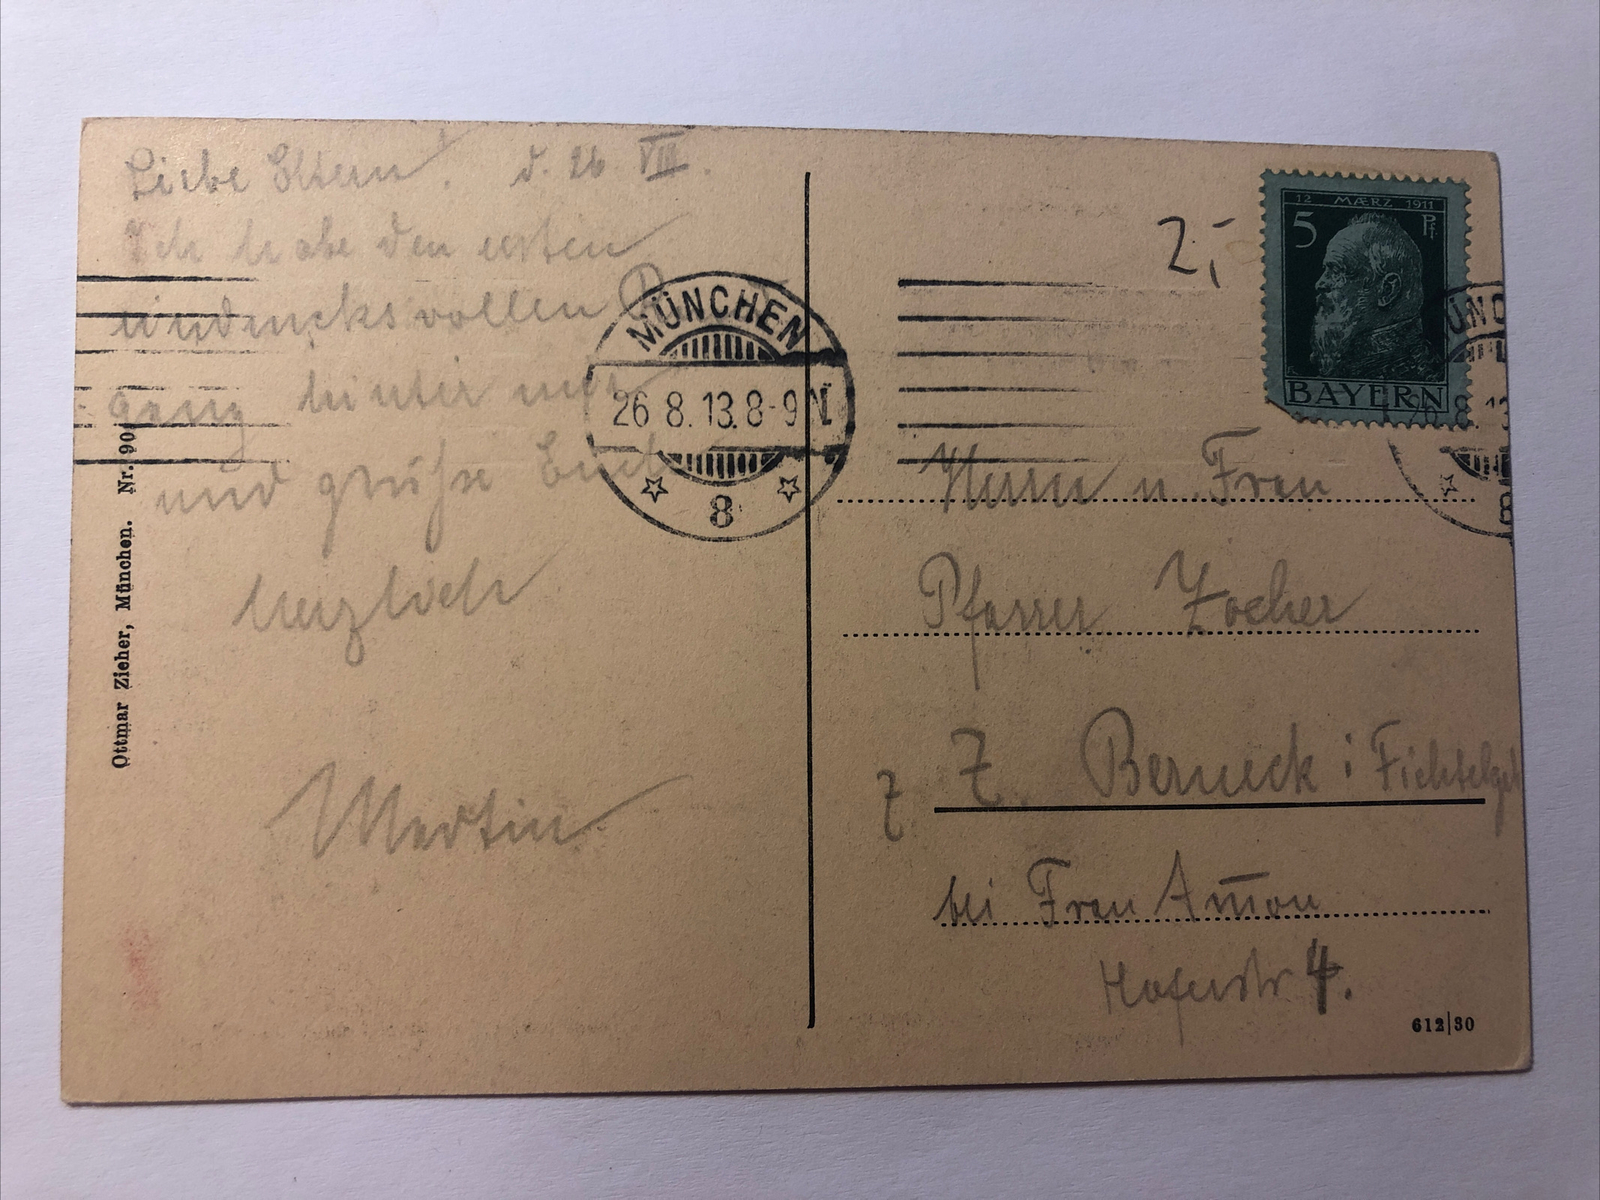 Liebe Eltern! d. 26 VIII.
Ich habe den ersten
eindrucksvollen
gang hinter mir
und grüße Euch
herzlich
Martin.
Ottmar Zieher, München. Nr. 90
MÜNCHEN
26 8. 13. 8-9 N.
8
2,-
12 MÆRZ 1911
5 Pf
BAYERN
Herrn u. Frau
Pfarrer Zocher
z Z. Berneck i Fichtelgeb
bei Frau Am̄on
Hoferstr 4.
612|30